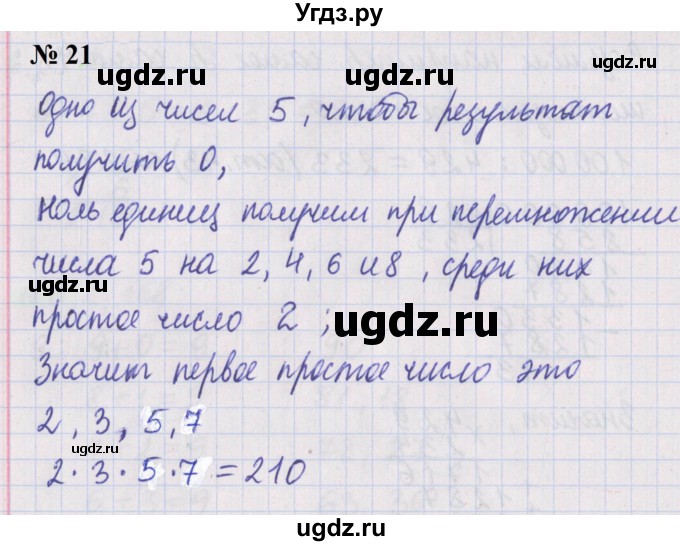 Угдз.ру
№ 21
ugdz.ru ugdz.ru
Одно из чисел 5, чтобы результат
ugdz.ru
получить 0,
Ноль единиц получим при перемножении
числа 5 на 2, 4, 6 и 8, среди них
ugdz.ru
простое число 2;
ugdz.ru
Значит первое простое число это
2, 3, 5, 7
ugdz.ru ugdz.ru
2·3·5·7=210
ugdz.ru
ugdz.ru